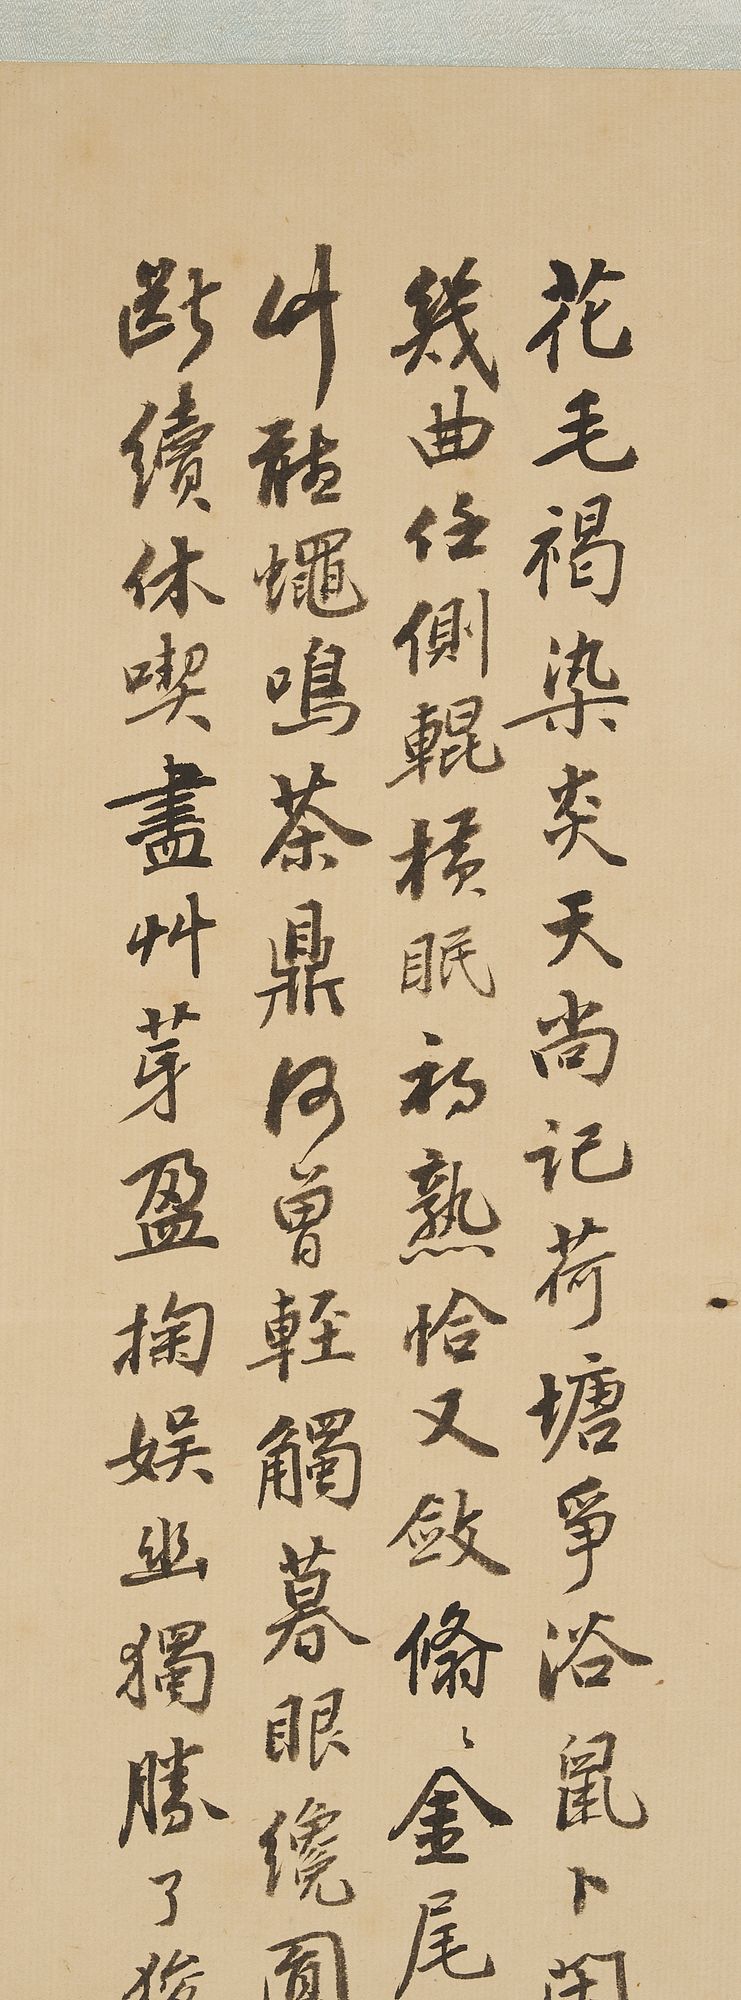 花毛褐染炎天尚記荷塘爭浴鼠卜閑
幾曲任側輥橫眠初熟恰又斂翛〻金尾
聽蠅鳴茶鼎何曾輕觸暮眼纔圓
斷續休喫盡艸芽盈掬娛幽獨勝了